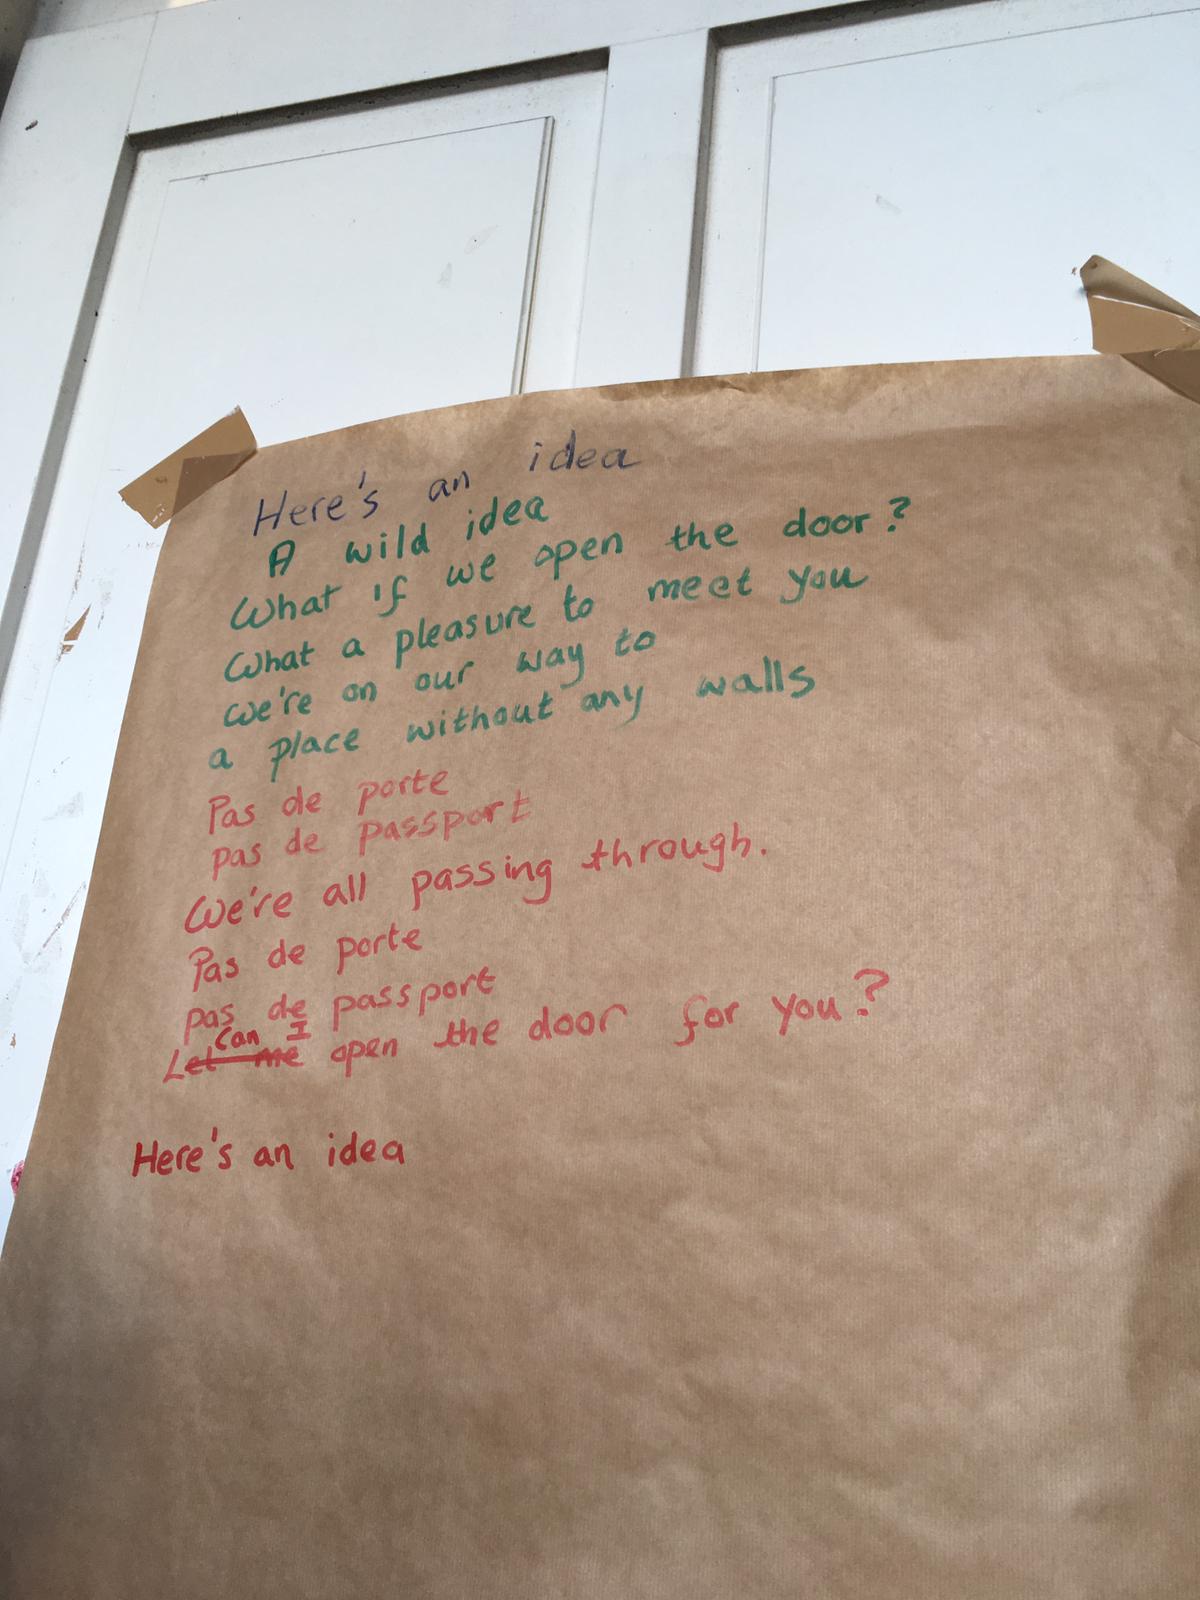 Here's an idea
A wild idea
What if we open the door?
What a pleasure to meet you
we're on our way to
a place without any walls
Pas de porte
pas de passport
We're all passing through.
Pas de porte
pas de passport
Can I
Let me open the door for you?
Here's an idea